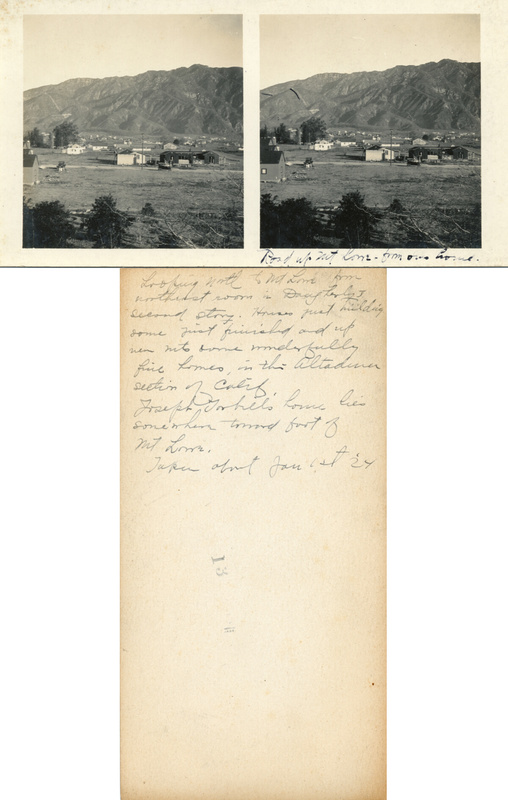 Road up Mt. Lowe - from our home.
Looking north to Mt Lowe from
northeast room in Daugherty's
second story. Houses just building
some just finished and up
near mts some wonderfully
fine homes, in this Altadena
section of Calif
Joseph home lies
somewhere toward foot of
Mt Lowe.
Taken about Jan 1st '24